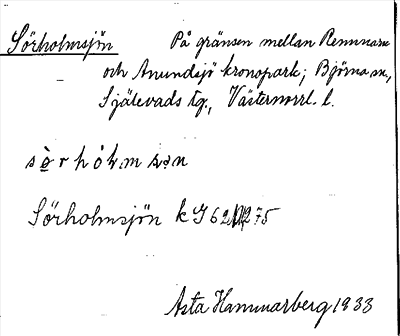 Sörholmsjön På gränsen mellan Remmarn
och Anundsjö kronopark; Björna sn.,
Själevads tg., Västernorrl. l.
Sörholmsjön k J 62 275
Asta Hammarberg 1933